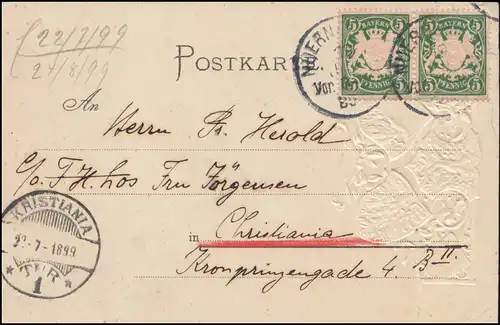 (22/7/99
27/8/99
BAYERN BAYERN
5 5 5 5
PFENNIG PFENNIG
NUERN NUERN
Vor. Vo
POSTKAR
An
Herrn Fr. Herold
c/o F. H. Los Fru Jörgensen
in Christiania
Kronprinzengade 4. B II.
KRISTIANIA
-7-1899
TUR
1